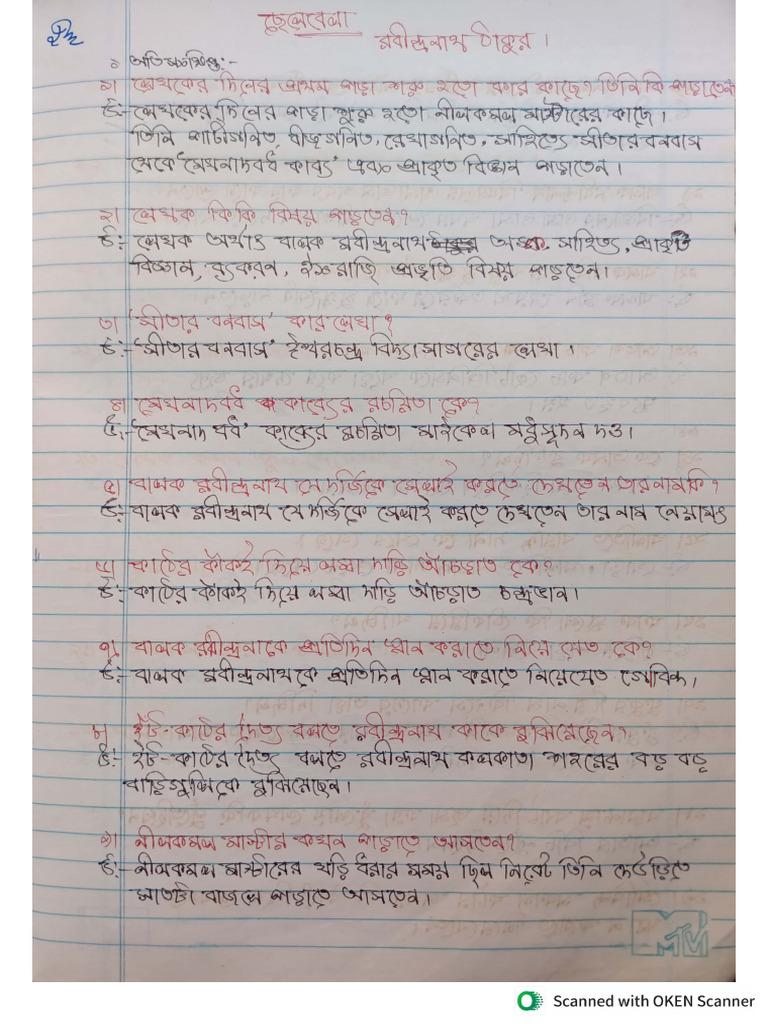 ছেলেবেলা
রবীন্দ্রনাথ ঠাকুর।
১ অতি সংক্ষিপ্ত:-
১। লেখকের দিনের প্রথম পড়া শুরু হতো কার কাছে? তিনি কি পড়াতেন
উ:- লেখকের দিনের পড়া শুরু হতো নীলকমল মাস্টারের কাছে।
তিনি পাটীগনিত, বীজগনিত, রেখাগনিত, সাহিত্যে সীতার বনবাস
থেকে 'মেঘনাদবধ কাব্য' এবং প্রাকৃত বিজ্ঞান পড়াতেন।
২। লেখক কি কি বিষয় পড়তেন?
উ:- লেখক অর্থাৎ বালক রবীন্দ্রনাথ অঙ্ক, সাহিত্য, প্রাকৃত
বিজ্ঞান, ব্যাকরন, ইংরাজি প্রভৃতি বিষয় পড়তেন।
৩। 'সীতার বনবাস' কার লেখা?
উ:- 'সীতার বনবাস' ঈশ্বরচন্দ্র বিদ্যাসাগরের লেখা।
৪। মেঘনাদবধ কাব্যের রচয়িতা কে?
উ:- 'মেঘনাদ বধ' কাব্যের রচয়িতা মাইকেল মধুসূদন দত্ত।
৫। বালক রবীন্দ্রনাথ যে দর্জিকে সেলাই করতে দেখতেন তার নাম কি?
উ:- বালক রবীন্দ্রনাথ যে দর্জিকে সেলাই করতে দেখতেন তার নাম নেয়ামৎ
৬। কাঠের কাঁকই দিয়ে লম্বা দাড়ি আঁচড়াত কে?
উ:- কাঠের কাঁকই দিয়ে লম্বা দাড়ি আঁচড়াত চন্দ্রভান।
৭। বালক রবীন্দ্রনাকে প্রতিদিন স্নান করাতে নিয়ে যেত কে?
উ:- বালক রবীন্দ্রনাথকে প্রতিদিন স্নান করাতে নিয়ে যেত গোবিন্দ।
৮। ইঁট-কাঠের দৈত্য বলতে রবীন্দ্রনাথ কাকে বুঝিয়েছেন?
উ:- ইঁট-কাঠের দৈত্য বলতে রবীন্দ্রনাথ কলকাতা শহরের বড় বড়
বাড়িগুলিকে বুঝিয়েছেন।
৯। নীলকমল মাস্টার কখন পড়াতে আসতেন?
উ:- নীলকমল মাস্টারের ঘড়ি ধরার সময় ছিল নিরেট তিনি দেউড়িতে
সাতটা বাজলে পড়াতে আসতেন।
MTV
Scanned with OKEN Scanner